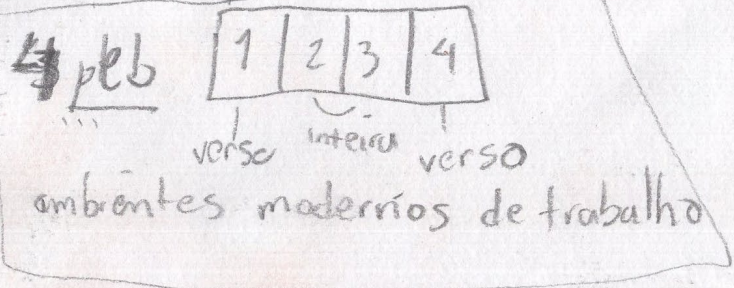 peb 1 2 3 4
verso inteira verso
ambientes modernos de trabalho